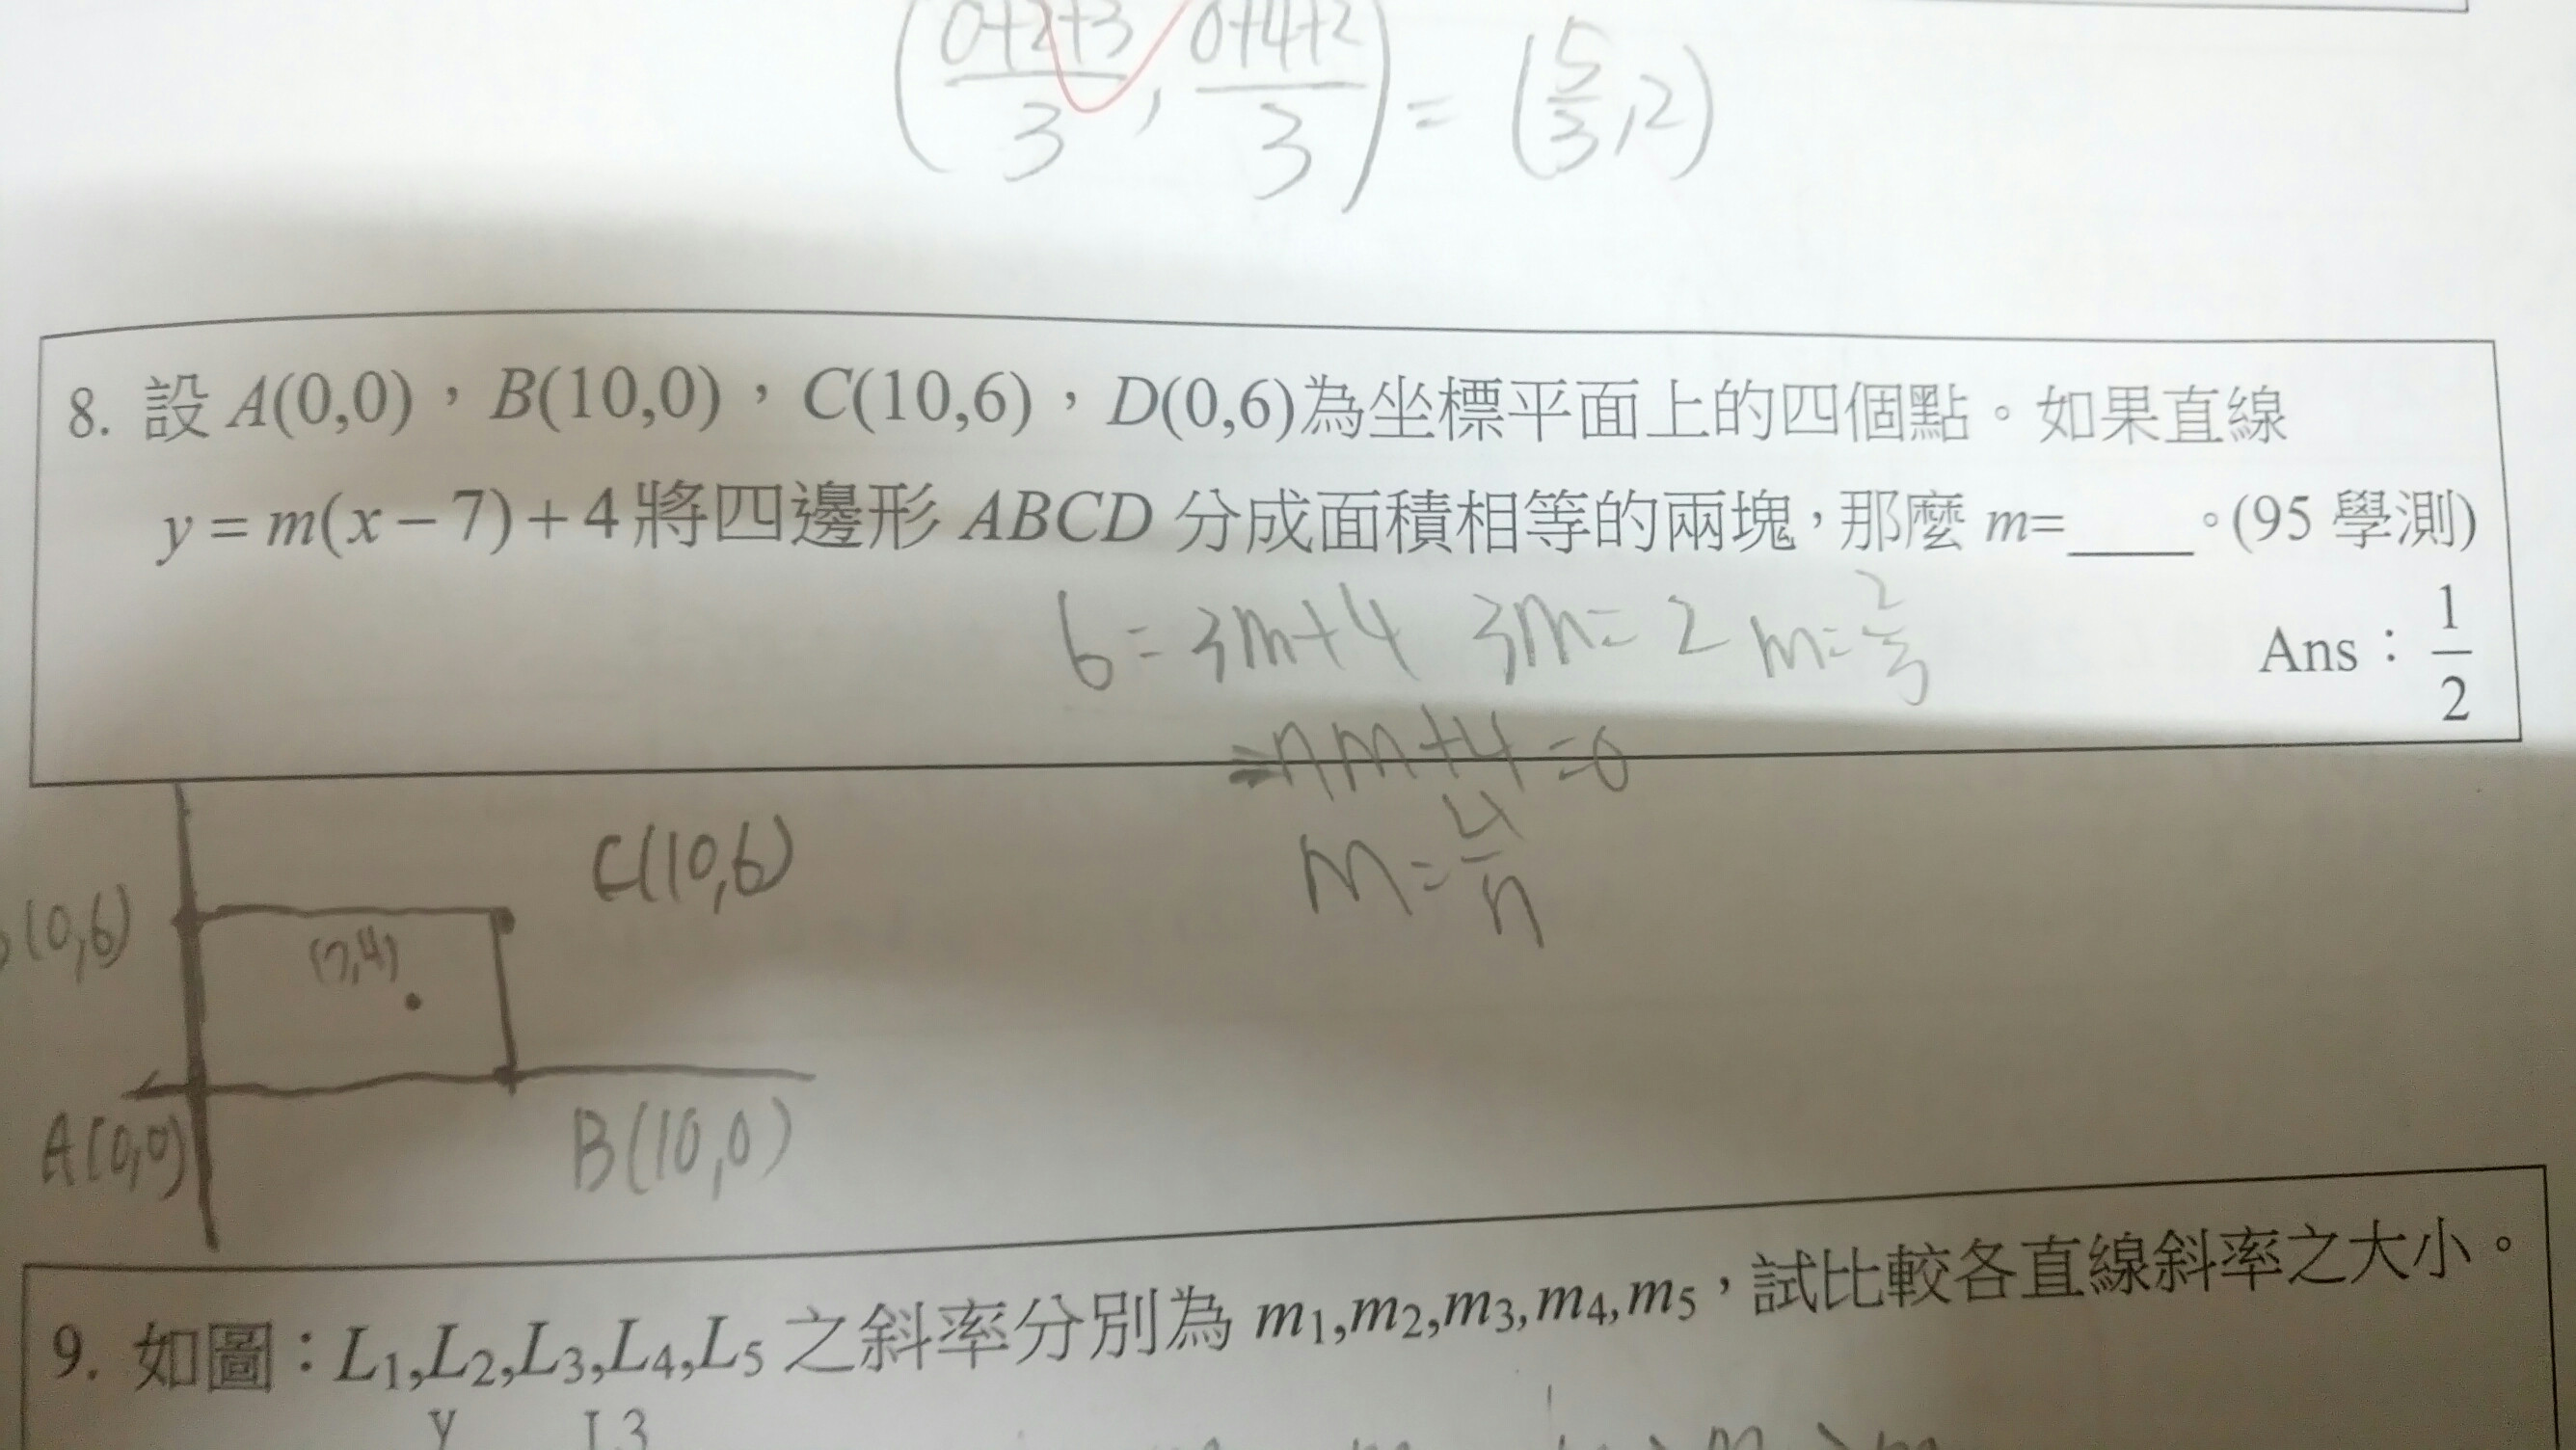 (0+2+3/3, 0+4+2/3) = (5/3, 2)
8. 設 A(0,0)，B(10,0)，C(10,6)，D(0,6)為坐標平面上的四個點。如果直線
y = m(x − 7) + 4 將四邊形 ABCD 分成面積相等的兩塊，那麼 m=____。(95 學測)
6 = 3m+4 3m = 2 m = 2/3
Ans：1/2
-7m+4=0
m = 4/7
C(10,6)
(0,6)
(7,4)
A(0,0)
B(10,0)
9. 如圖：L₁,L₂,L₃,L₄,L₅ 之斜率分別為 m₁,m₂,m₃,m₄,m₅，試比較各直線斜率之大小。
y L3